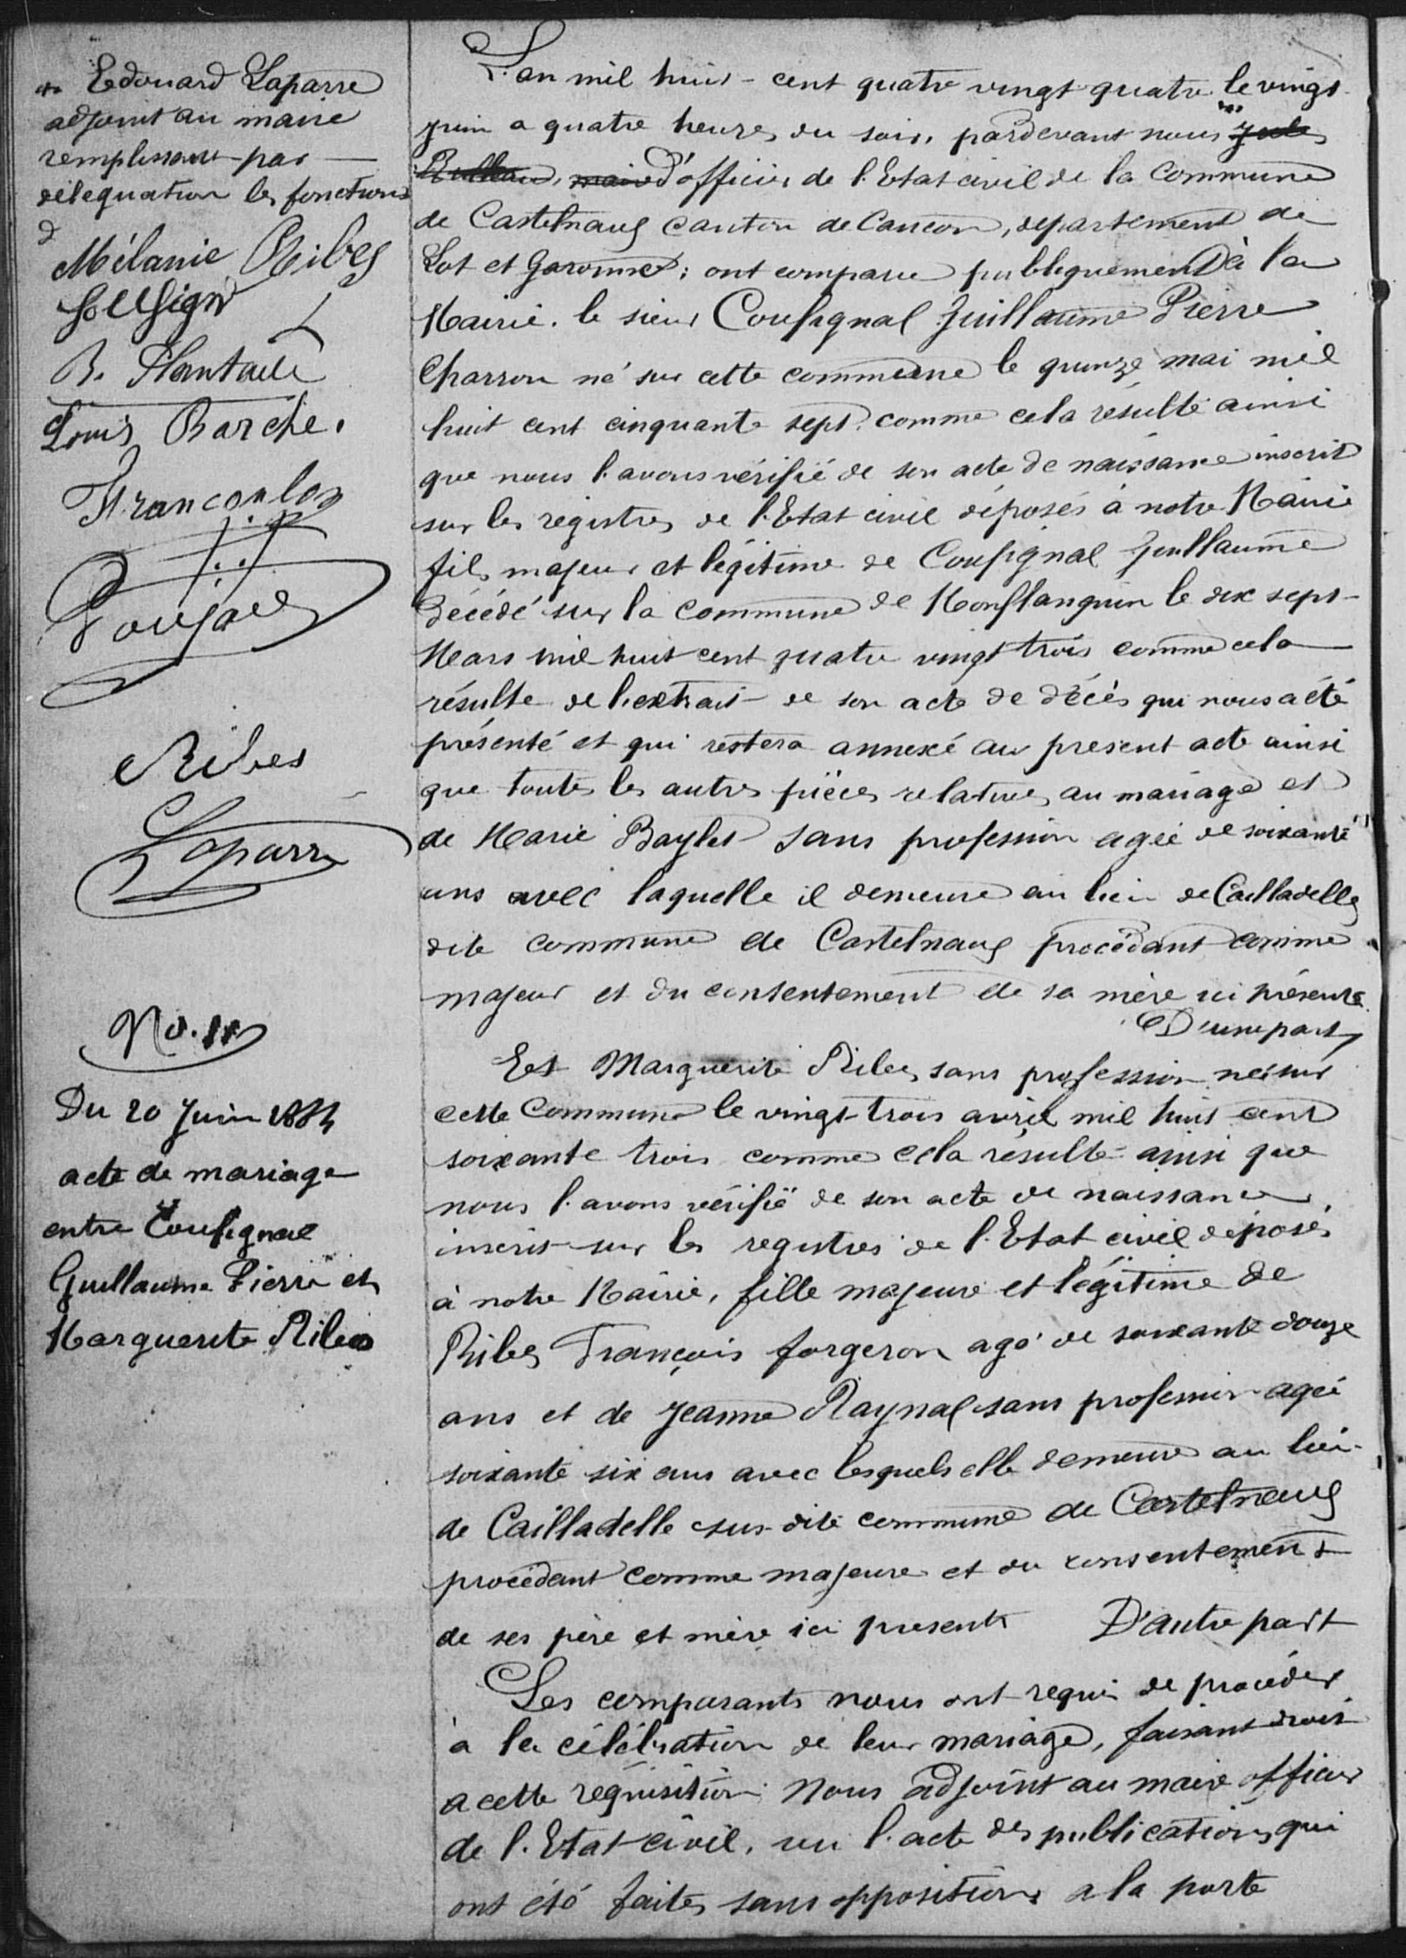 Edouard Laparre
adjoint au maire
remplissant par
déléguation les fonctions
d
Mélanie Ribes
B. Plantade
Louis Barche.
Francoulon
Poujade
Ribes
Laparre
No. 11
Du 20 Juin 1884
acte de mariage
entre Cousignal
Guillaume Pierre et
Marguerite Ribes
L'an mil huit-cent quatre vingt quatre le vingt
juin a quatre heures du soir, pardevant nous Jules
maire d'officier de l'Etat civil de la commune
de Castelnaud canton de Cancon, département de
Lot et Garonne; ont comparu publiquement à la
Mairie. le sieur Cousignal Guillaume Pierre
Charron né sur cette commune le quinze mai mil
huit cent cinquante sept. comme cela résulte ainsi
que nous l'avons vérifié de son acte de naissance inscrit
sur les registres de l'Etat civil déposés à notre Mairie
fils majeur et légitime de Cousignal Guillaume
décédé sur la commune de Monflanquin le dix sept
Mars mil huit cent quatre vingt trois comme cela
résulte de l'extrait de son acte de décès qui nous a été
présenté et qui restera annexé au present acte ainsi
que toutes les autres pièces relatives au mariage et
de Marie Bayles sans profession agée de soixante
ans avec laquelle il demeure au lieu de Cailladelles
dite commune de Castelnaud procédant comme
majeur et du consentement de sa mère ici présente
D'une part,
Et Marguerite Ribes, sans profession née sur
cette commune le vingt trois avril mil huit cent
soixante trois comme cela résulte ainsi que
nous l'avons vérifié de son acte de naissance
inscrit sur les registres de l'Etat civil déposés
à notre Mairie, fille majeure et légitime de
Ribes François forgeron agé de soixante douze
ans et de Jeanne Raynal sans profession agée
soixante six ans avec lesquels elle demeure au lieu
de Cailladelle sus-dite commune de Castelnaud
procédant comme majeure et du consentement
de ses père et mère ici presents D'autre part
Les comparants nous ont requis de procéder
à la célébration de leur mariage, faisant droit
a cette réquisition Nous adjoint au maire officier
de l'Etat civil, vu l'acte des publications qui
ont été faites sans oppositions a la porte